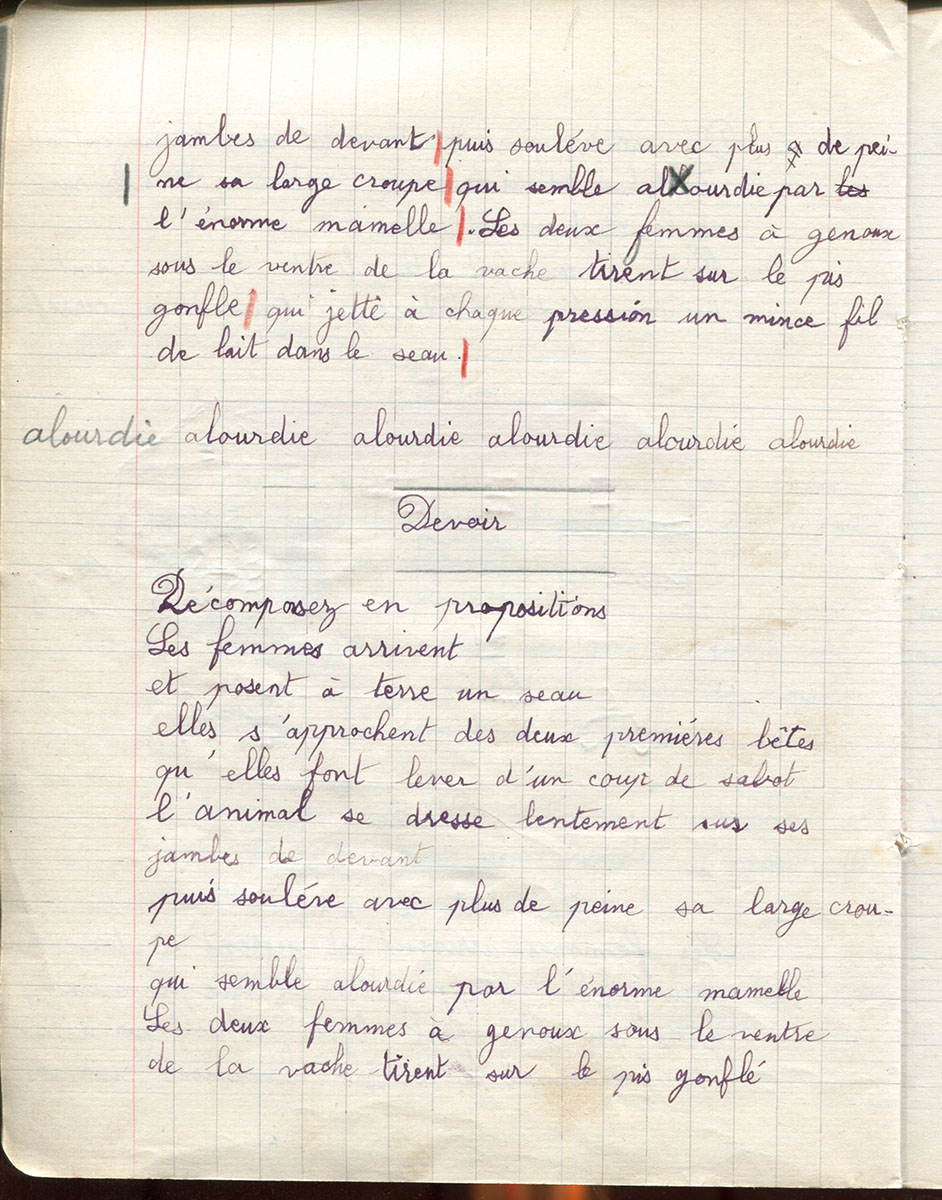 jambes de devant puis souléve avec plus de pei-
ne sa large croupe qui semble allourdie par les
l'énorme mamelle. Les deux femmes à genoux
sous le ventre de la vache tirent sur le pis
gonfle qui jette à chaque pression un mince fil
de lait dans le seau.
alourdie alourdie alourdie alourdie alourdie alourdie
Devoir
Décomposez en propositions
Les femmes arrivent
et posent à terre un seau
elles s'approchent des deux premiéres bêtes
qu'elles font lever d'un coup de sabot
l'animal se dresse lentement sur ses
jambes de devant
puis souléve avec plus de peine sa large crou-
pe
qui semble alourdie par l'énorme mamelle
Les deux femmes à genoux sous le ventre
de la vache tirent sur le pis gonflé